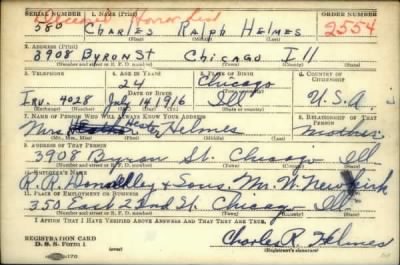 Deceased Honor List
SERIAL NUMBER 1. NAME (Print) ORDER NUMBER
580 CHARLES RALPH HELMES 2554
(First) (Middle) (Last)
2. ADDRESS (Print)
3908 BYRON ST CHICAGO ILL
(Number and street or R. F. D. number) (Town) (County) (State)
3. TELEPHONE 4. AGE IN YEARS 5. PLACE OF BIRTH 6. COUNTRY OF CITIZENSHIP
24 Chicago
DATE OF BIRTH (Town or county)
Irv. 4028 July 14 1916 Ill U.S.A
(Exchange) (Number) (Mo.) (Day) (Yr.) (State or country)
7. NAME OF PERSON WHO WILL ALWAYS KNOW YOUR ADDRESS 8. RELATIONSHIP OF THAT PERSON
Mrs. Helmes mother
(Mr., Mrs., Miss) (First) (Middle) (Last)
9. ADDRESS OF THAT PERSON
3908 Byron St. Chicago Ill
(Number and street or R. F. D. number) (Town) (County) (State)
10. EMPLOYER'S NAME
R. R. Donnelley & Sons Mr. W. Newkirk
11. PLACE OF EMPLOYMENT OR BUSINESS
350 East 22nd St. Chicago Ill
(Number and street or R. F. D. number) (Town) (County) (State)
I AFFIRM THAT I HAVE VERIFIED ABOVE ANSWERS AND THAT THEY ARE TRUE.
REGISTRATION CARD
D. S. S. Form 1 Charles R. Helmes
(Registrant's signature)